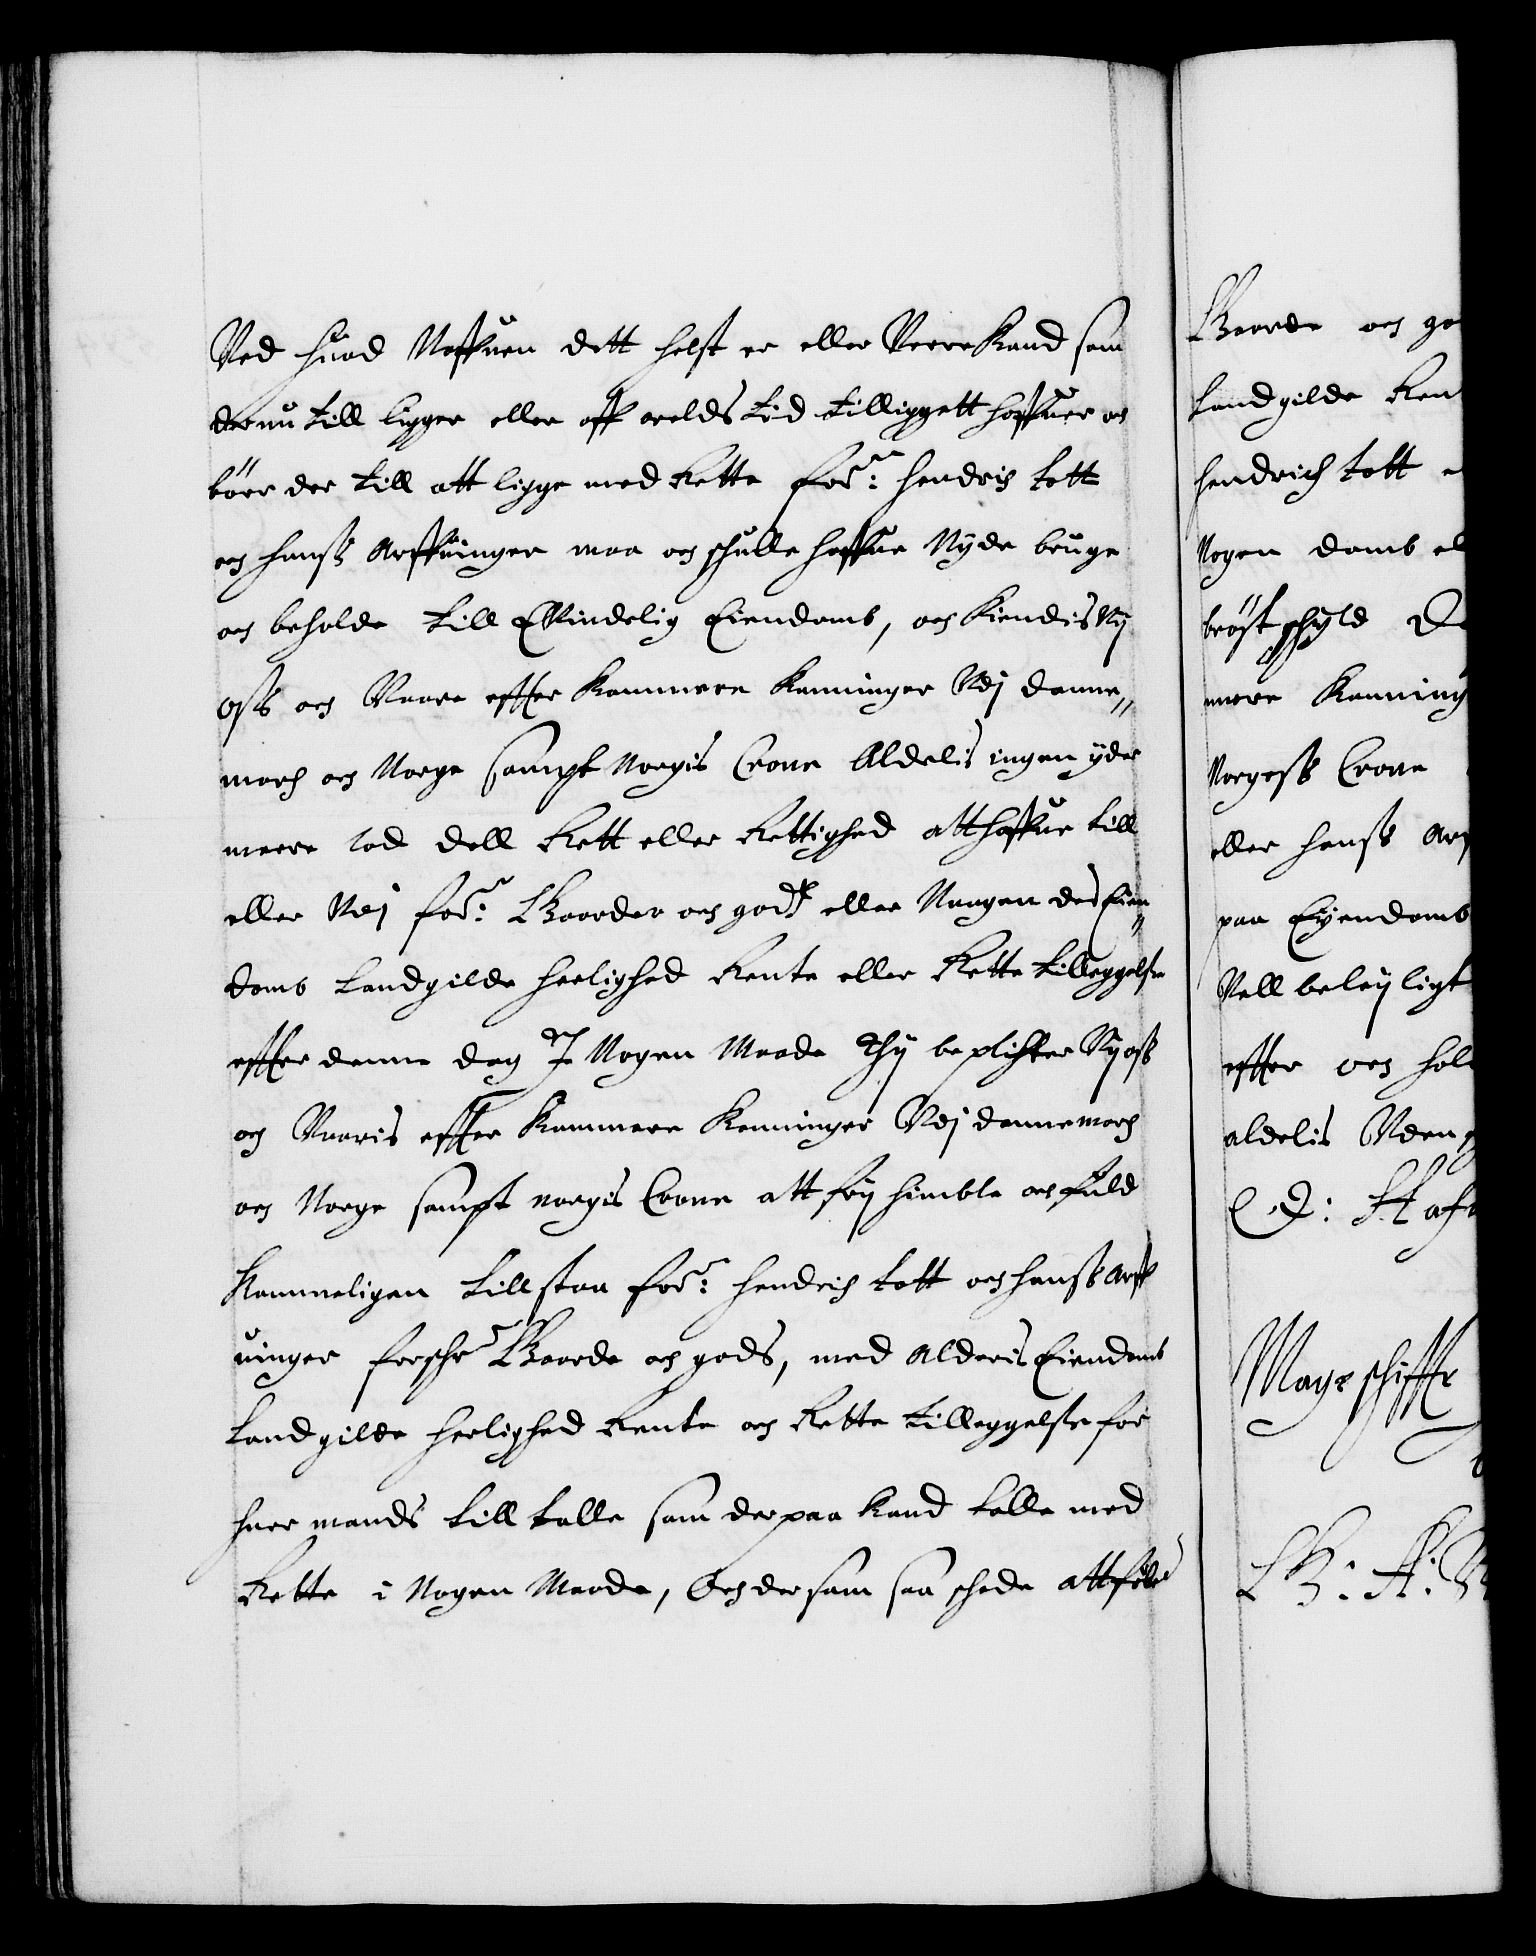 Ved huad Naffnn dett helst er eller Verre Kand som
der nu till ligger eller aff arilds tid tilliggett haffuer oc
bör der till att ligge med Rette for:ne Hendrich tott
och hanss Arffuinger maa och schulle haffue Nyde bruge
och beholde till Evindelig Eiendomb, och Kiendis Vij
oss och Vaare effter Kommere Konninger Udj Danne„
march och Norge sampt Norgis Crone Aldelis ingen yder
mere lod dell Rett eller Rettighed att haffue till
eller Udj for:ne Gaarder och godz eller Naagen des Eien„
domb Landgilde herlighed Rente eller Rette tilleggelse
effter denne dag J Nogen Maade Thij bepligter Vij oss
och Vaaris effter Kommere Konninger Udj Dannemarch
och Norge sampt norgis Crone att frij himble och fuld
Kommeligen till staa for:ne Hendrich tott och hanss Arff
uinger forschr: Gaarde och gods, med Alderis Eiendomb
Landgilde herlighed Rente och Rette tilleggelse for
huer mands till talle som der paa Kand talle med
Rette i Nogen Maade, Och dersom saa schede att for:ne
Gaarde och go
Landgilde Ren
Hendrich tott e
Nogen domb el
bröst schyld D
mere Konning
Norgess Crone
eller hanss Arf
paa Eijendomb
Vell beleyligt
effter och hol
aldelis Uden
C D: Hafn
Mageschiffte
G: A: V